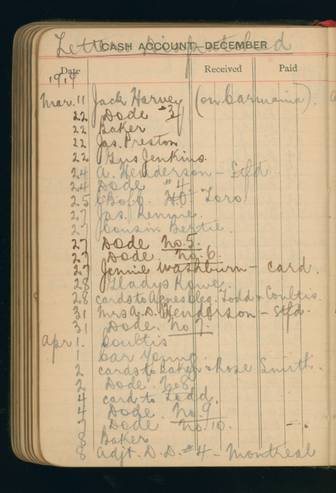 Letters Dispatched
CASH ACCOUNT—DECEMBER
Date Received Paid
1919
Mar. 11 Jack Harvey (on Carmania).
22 Dode #3
22 Baker
22 Jas. Preston
22 Gus Jenkins
24 A. Henderson - Stfd
24 Dode #4
25 HQ Toro
27 Jas. Rennie
27 Cousin Bertie.
27 Dode No. 5.
27 Dode No. 6.
27 Jennie Washburn - card.
28 Gladys Rowe.
28 cards to Agnes Todd & Coultis
31 Mrs A. D. Henderson - Stfd.
31 Dode. No 7.
Apr 1. Coultis
1 Car Young.
2 cards to Baker & Rose Smith.
2 Dode No 8.
4 card to Todd.
4 Dode No. 9
7 Dode. No. 10.
8 Baker
8 Adjt. D.D. #4 - Montreal